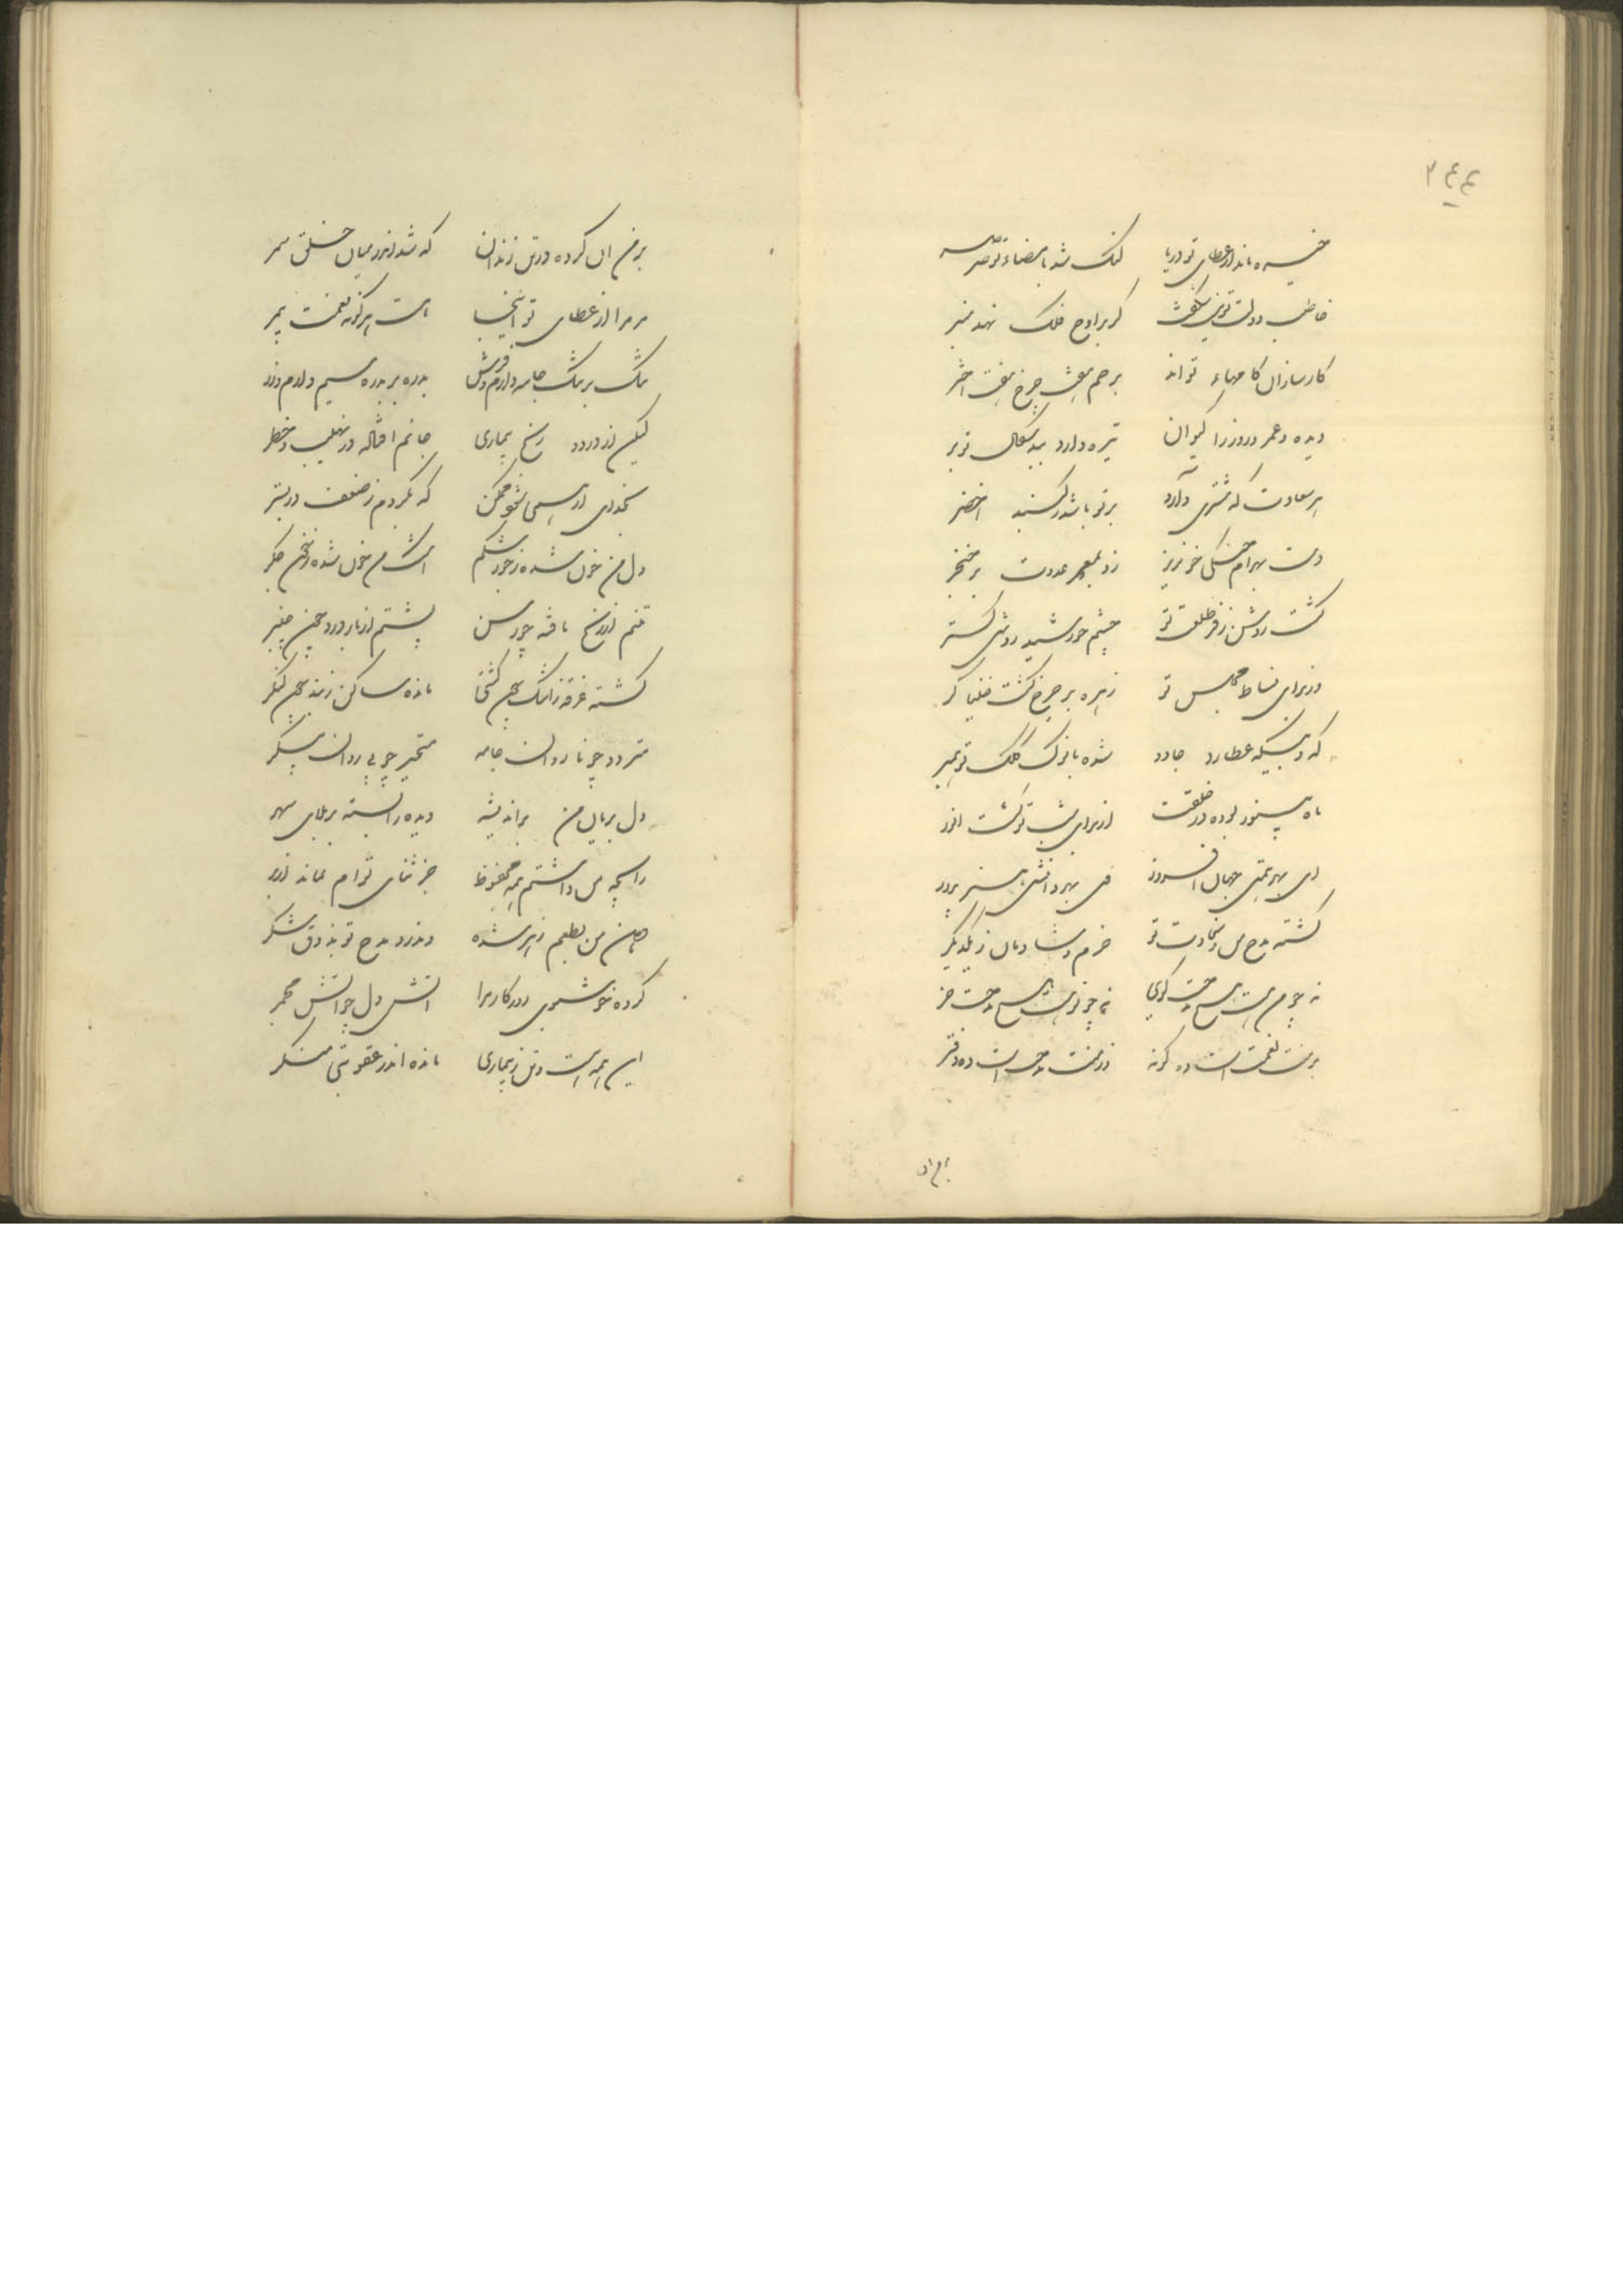 ۲۴۴
خیره ماند از عطای تو دریا لنگ شد با مضاء تو صرصر
خاطب دولت تو می‌گفت کر بر اوج فلک نهد منبر
کارسازان کامهاء تو اند بر حم هفت چرخ هفت اختر
دیده و عمر و روز را کیوان تیره دارد ببدسگال تو بر
هر سعادت که مشتری دارد بر تو باشد ز گنبد اخضر
دست بهرام جنگی خونریز زد بمهر عدوت بر خنجر
گشت روشن ز فر طلعت تو چشم خورشید روشنی گستر
وز برای نشاط مجلس تو زهره بر چرخ گشت خنیاگر
که و بیگه عطارد جادو شده با نوک کلک تو همبر
ماه بی نور بوده در خلقت از برای شب تو گشت انور
ای بهر همتی جهان افروز وی بهر دانشی هنر پرور
گشته مدح من و سخاوت تو خرم و شادمان ز یکدیگر
نه چو من هست هیچ مدحت گوی نه چو تو هست هیچ مدحت خر
بر منت نعمت است ده گونه وز منت مدحت است ده دفتر
بر من ان
بر من ان کرده در تن زندان که شد اندر میان خلق سمر
مر مرا از عطای تو اینجا هست هر گونه نعمت بی مر
تنگ بر تنگ جامه دارم و فرش بدره بر بدره سیم دارم و زر
لیکن از درد و رنج بیماری جانم افتاده در نهیب و خطر
بخدای ار همی شود ممکن که بگردم ز ضعف در بستر
دل من خون شده ز جور شکم اشک من خون شده ز رنج جگر
تنم از رنج تافته چو رسن پشتم از بار درد چون چنبر
گشته غرقه ز اشک چون کشتی مانده ساکن ز بند چون لنگر
متردد چو نا روان خامه متحیر چو بی روان پیکر
دل بریان من بر اندیشه دیده را بسته بر بلای سهر
زانچه من داشتم همه محفوظ جز ثنای توام نماند از بر
دهن من بطعم زهر شده وندرو مدح تو بذوق شکر
کرده خوشبوی روزگار مرا اتش دل چو اتش مجمر
این همه هست و تن ز بیماری مانده اندر عقوبتی منکر